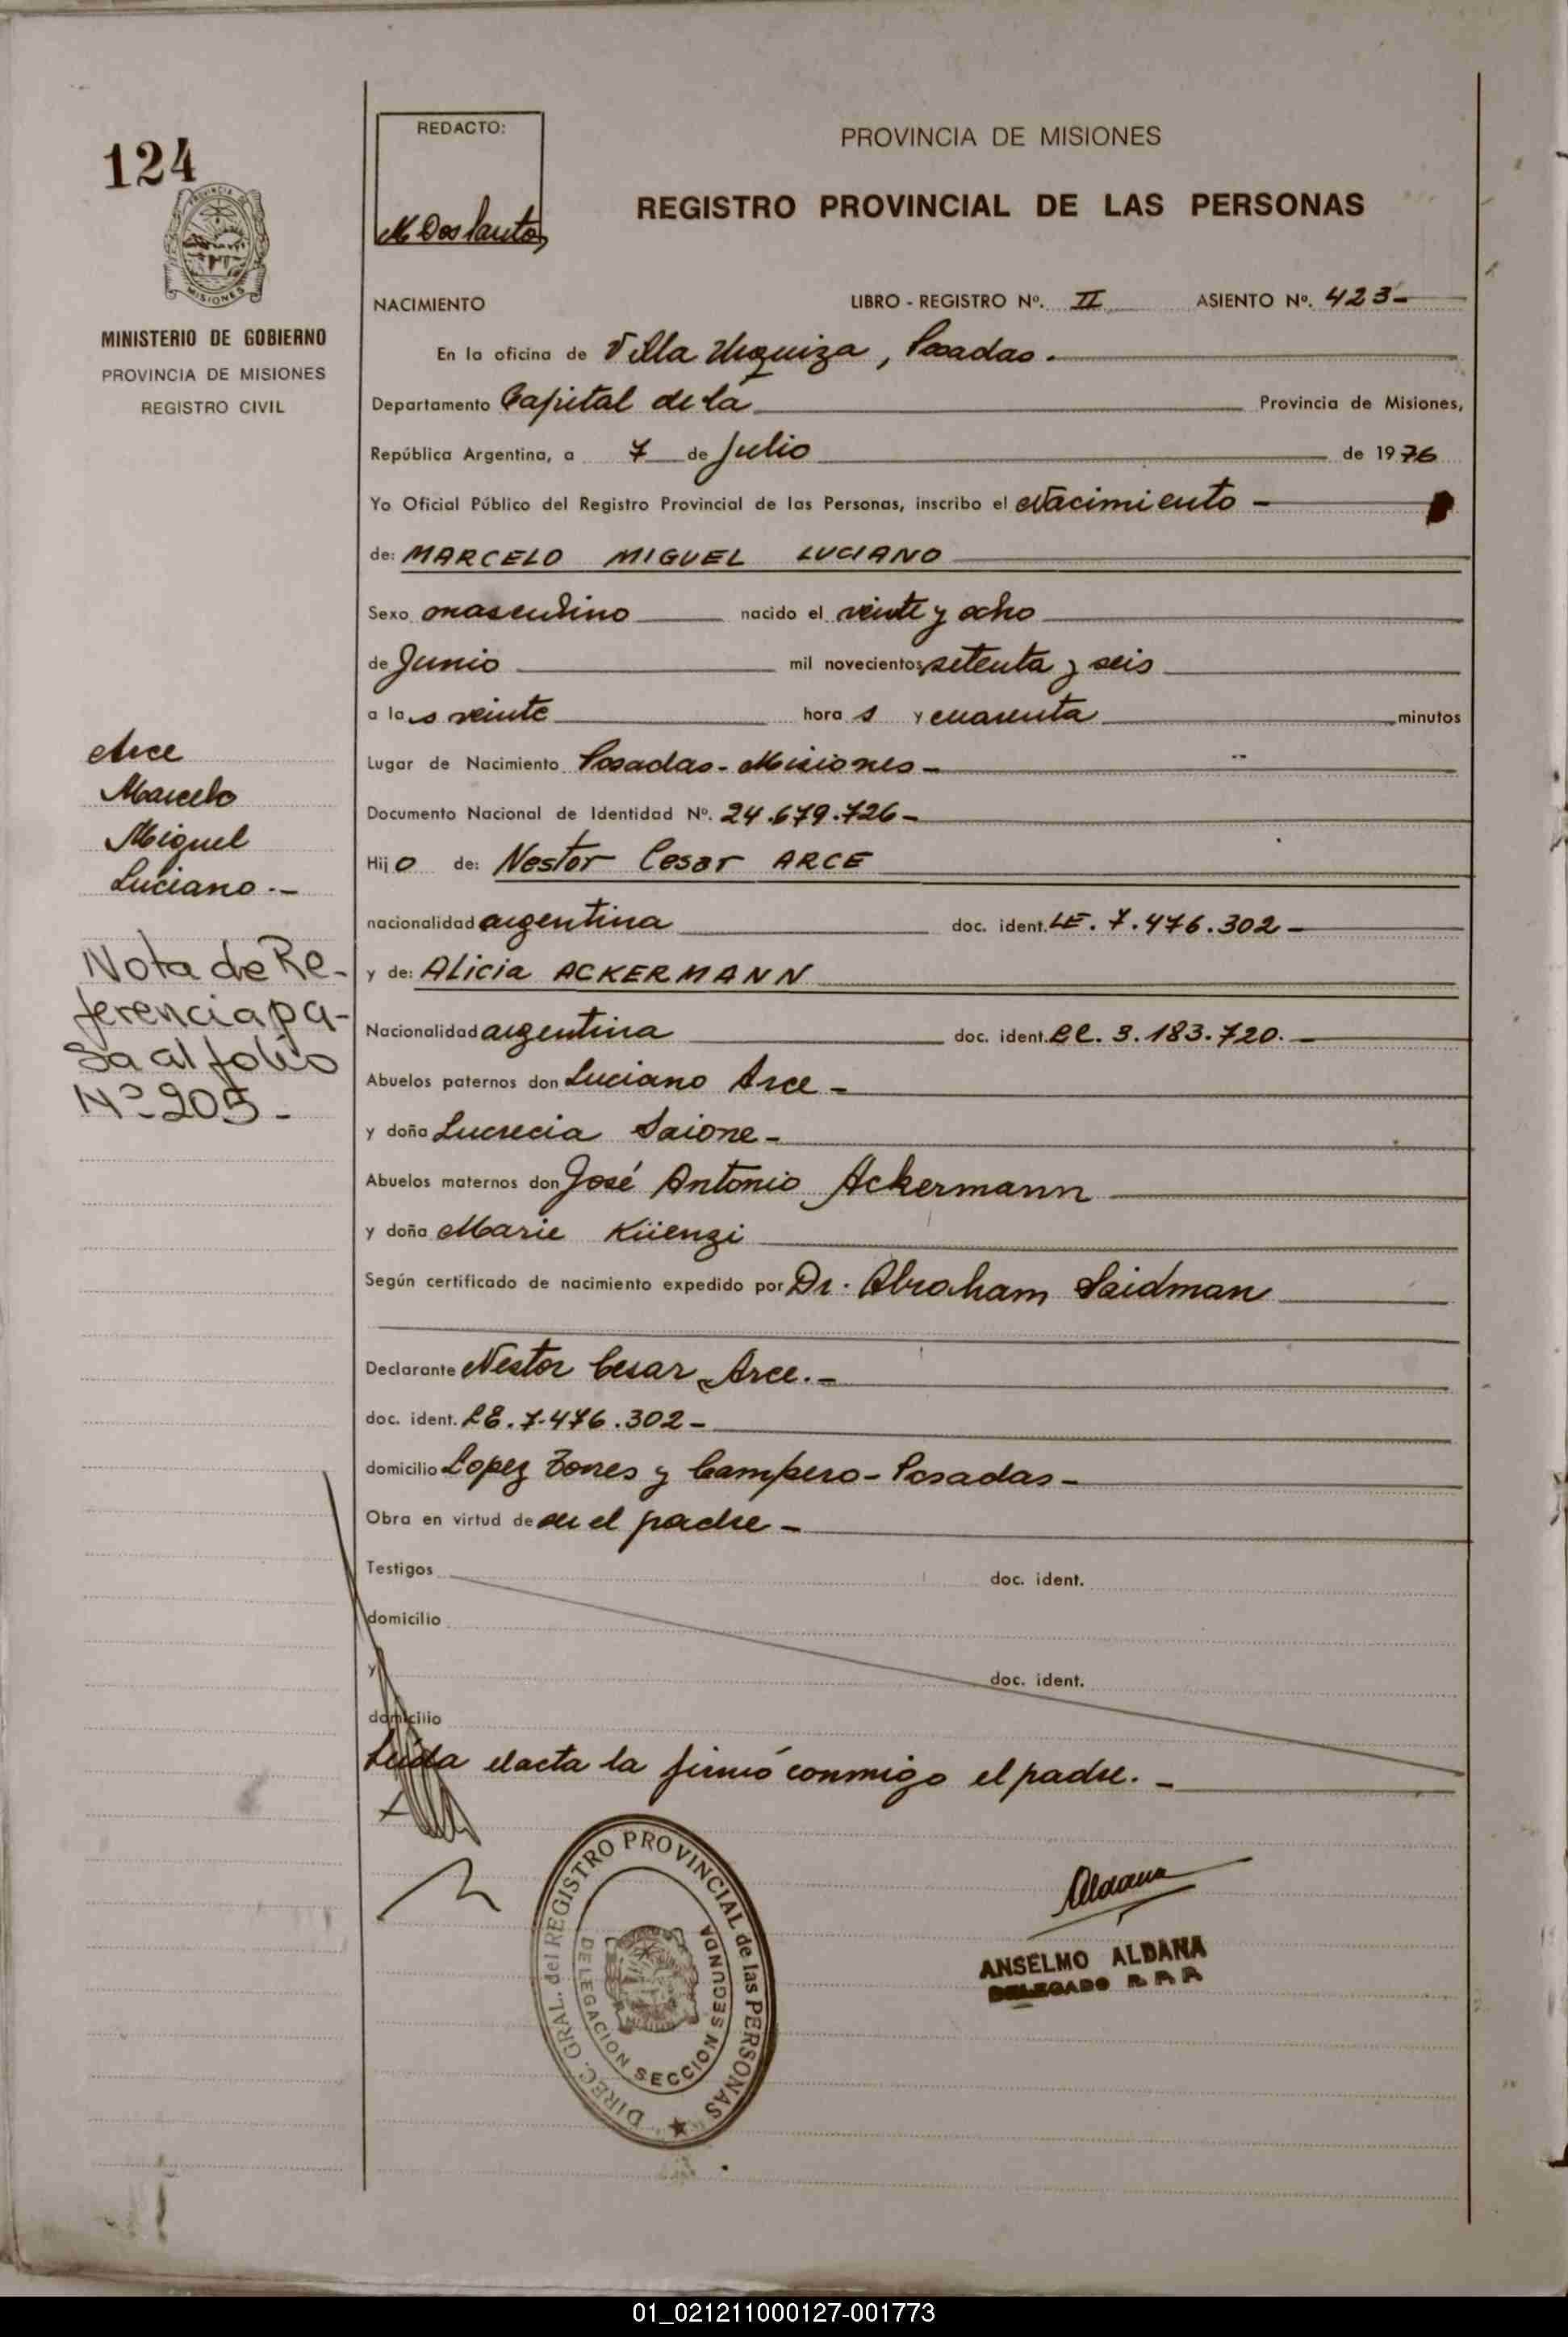 124
PROVINCIA DE
MISIONES
MINISTERIO DE GOBIERNO
PROVINCIA DE MISIONES
REGISTRO CIVIL
REDACTO:
M Dos Santos
PROVINCIA DE MISIONES
REGISTRO PROVINCIAL DE LAS PERSONAS
NACIMIENTO LIBRO - REGISTRO Nº. II ASIENTO Nº. 423-
En la oficina de Villa Urquiza, Posadas.
Departamento Capital de la Provincia de Misiones,
República Argentina, a 7 de Julio de 1976
Yo Oficial Público del Registro Provincial de las Personas, inscribo el Nacimiento -
de: MARCELO MIGUEL LUCIANO
Sexo masculino nacido el veinte y ocho
de Junio mil novecientos setenta y seis
a las veinte horas y cuarenta minutos
Lugar de Nacimiento Posadas - Misiones -
Documento Nacional de Identidad Nº. 24.679.726-
Hijo de: Nestor Cesar ARCE
nacionalidad argentina doc. ident. LE. 7.476.302-
y de: Alicia ACKERMANN
Nacionalidad argentina doc. ident. LC. 3.183.720.-
Abuelos paternos don Luciano Arce -
y doña Lucrecia Saione -
Abuelos maternos don José Antonio Ackermann
y doña Marie Küenzi
Según certificado de nacimiento expedido por Dr. Abraham Saidman
Declarante Nestor Cesar Arce.-
doc. ident. LE. 7.476.302-
domicilio Lopez Torres y Campero - Posadas -
Obra en virtud de ser el padre -
Testigos doc. ident.
domicilio
y doc. ident.
domicilio
Leída el acta la firmó conmigo el padre. -
Arce
Marcelo
Miguel
Luciano.-
Nota de Re-
ferencia pa-
sa al folio
Nº 205-
DIREC. GRAL. del REGISTRO PROVINCIAL de las PERSONAS
DELEGACION SECCION SEGUNDA
MISIONES
Aldana
ANSELMO ALDANA
DELEGADO R. P. P.
01_021211000127-001773